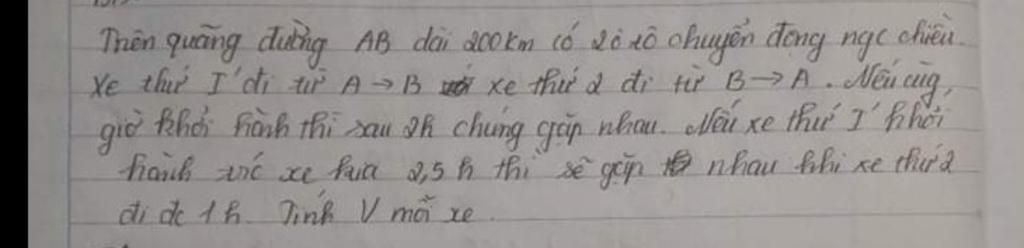 Trên quãng đường AB dài 200km có 2 ô tô chuyển động ngc chiều.
Xe thứ I đi từ A → B xe thứ 2 đi từ B → A. Nếu cùg,
giờ khởi hành thì sau 2h chúng gặp nhau. Nếu xe thứ I khởi
hành trc xe kia 2,5 h thì sẽ gặp nhau khi xe thứ 2
đi đc 1h. Tính V mỗi xe.